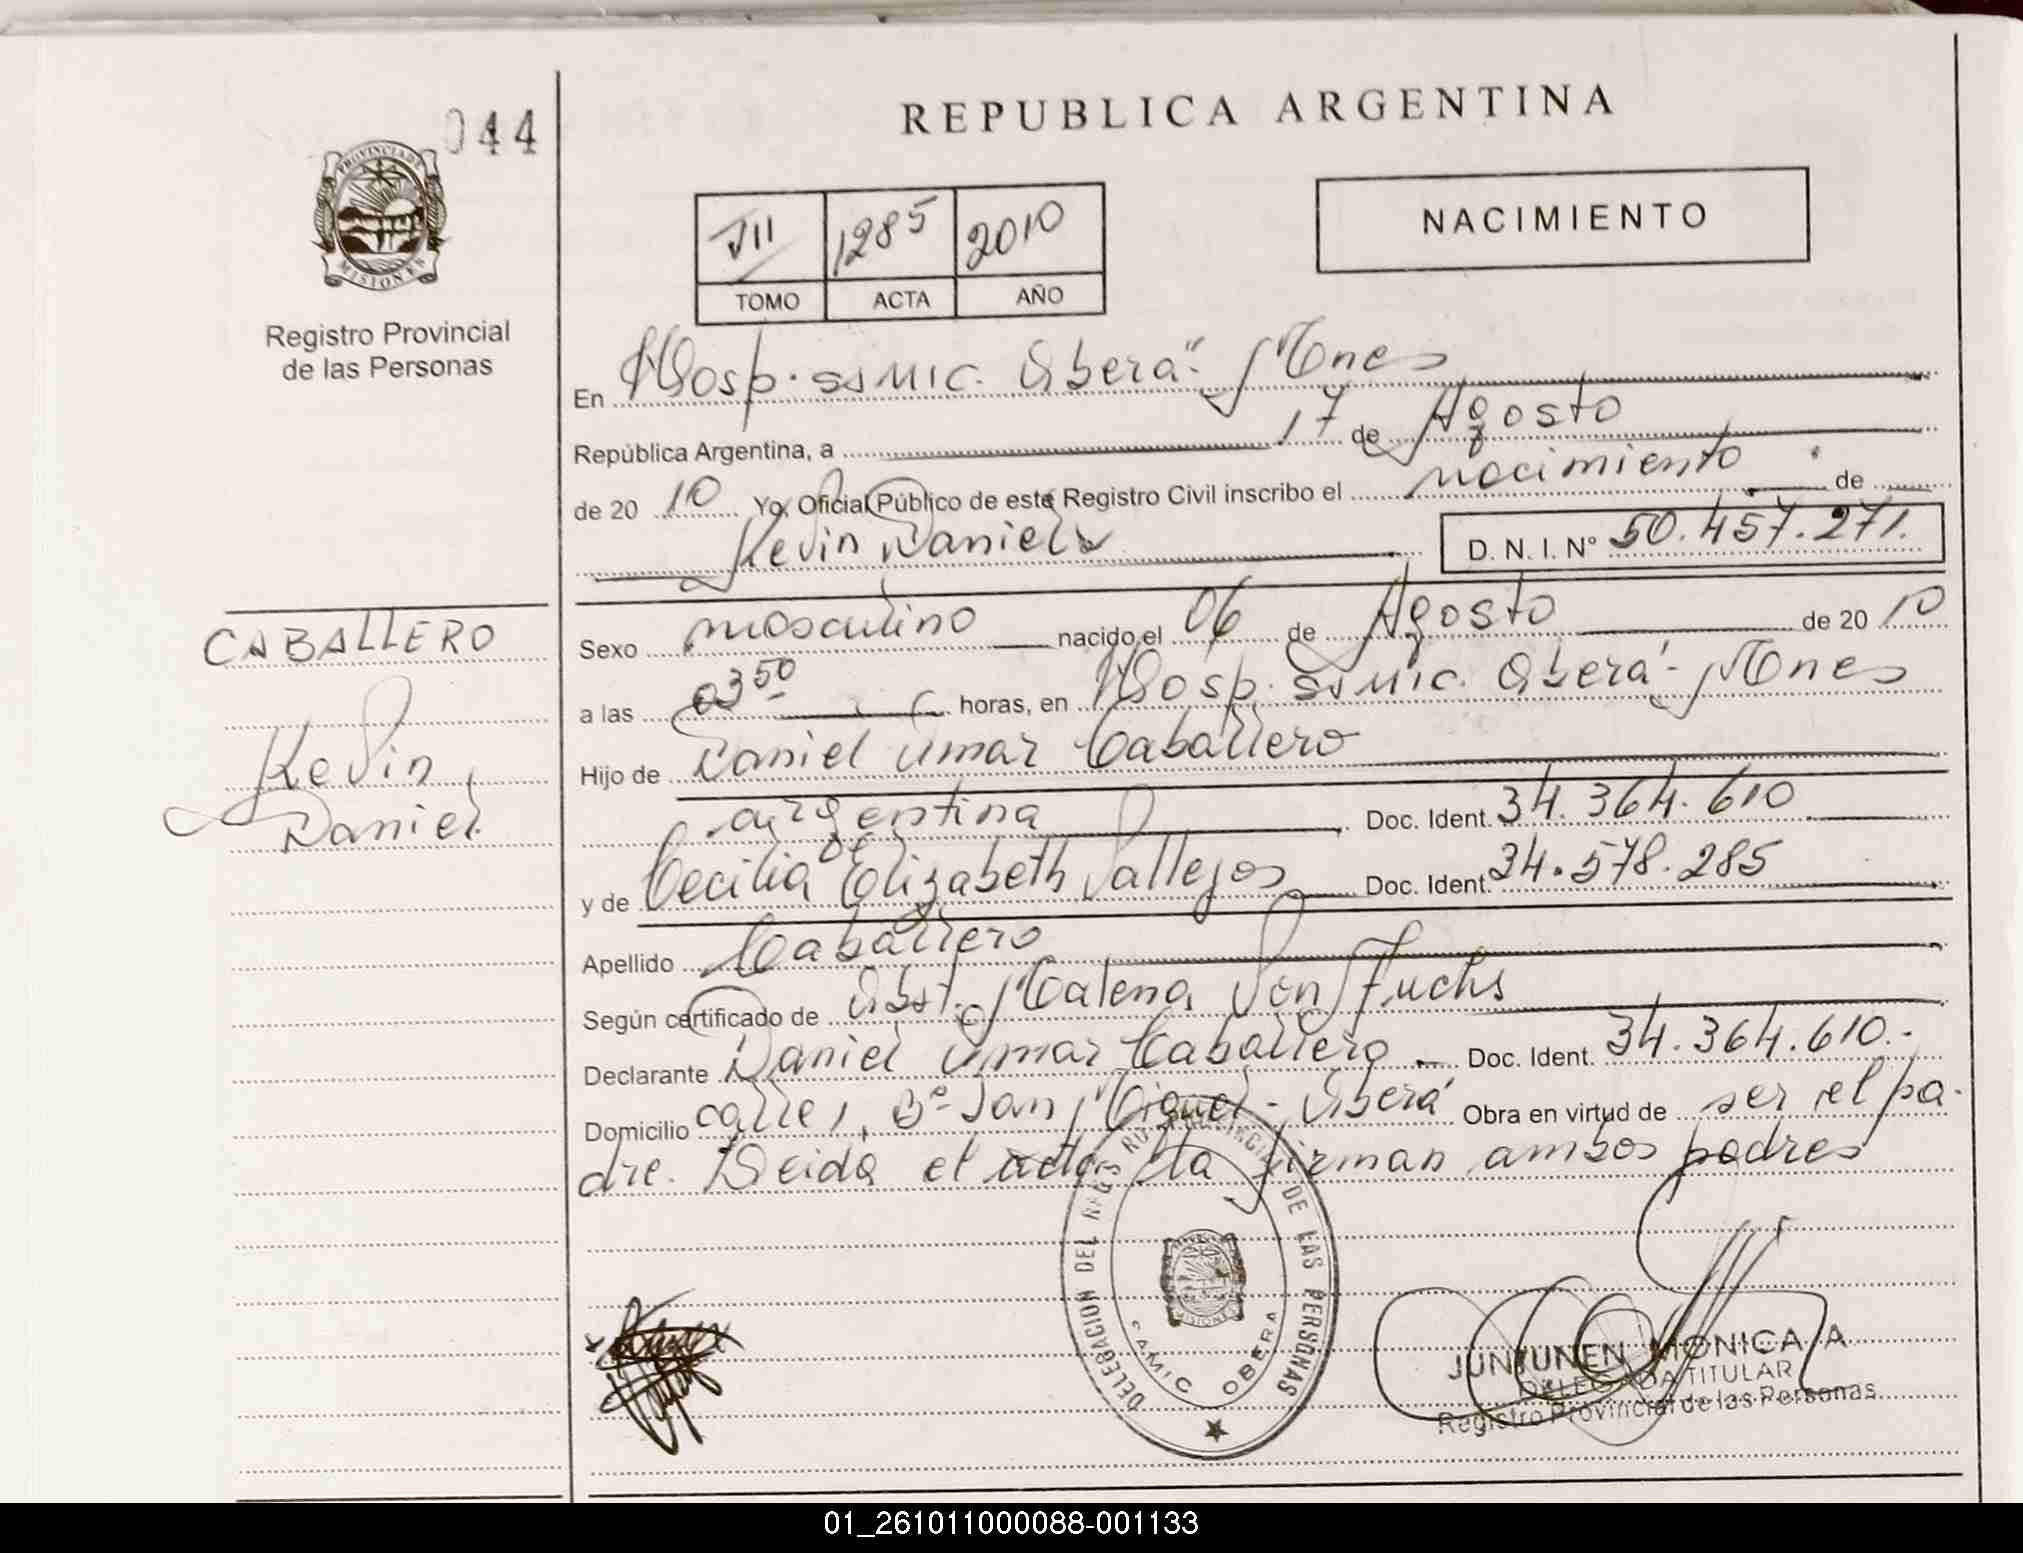 044
PROVINCIA DE
MISIONES
Registro Provincial
de las Personas
REPUBLICA ARGENTINA
NACIMIENTO
1285 2010
TOMO ACTA AÑO
En Hosp. SAMIC. Oberá - Mnes
República Argentina, a 17 de Agosto
de 20 10 Yo, Oficial Público de este Registro Civil inscribo el nacimiento de
Kevin Daniel
D. N. I. Nº 50.457.271.
CABALLERO
Kevin
Daniel
Sexo masculino nacido el 06 de Agosto de 20 10
a las 03 50 horas, en Hosp. SAMIC. Oberá - Mnes
Hijo de Daniel Omar Caballero
argentina Doc. Ident. 34.364.610
y de Cecilia Elizabeth Vallejos Doc. Ident. 34.578.285
Apellido Caballero
Según certificado de Obst. Malena Von Fuchs
Declarante Daniel Omar Caballero Doc. Ident. 34.364.610.-
Domicilio calle 1, Bº San Miguel - Oberá Obra en virtud de ser el pa-
dre. Leida el acta la firman ambos padres
DELEGACION DEL REGISTRO PROVINCIAL DE LAS PERSONAS
MISIONES
SAMIC OBERA
JUNIUNEN MONICA A
DELEGADA TITULAR
Registro Provincial de las Personas
01_261011000088-001133